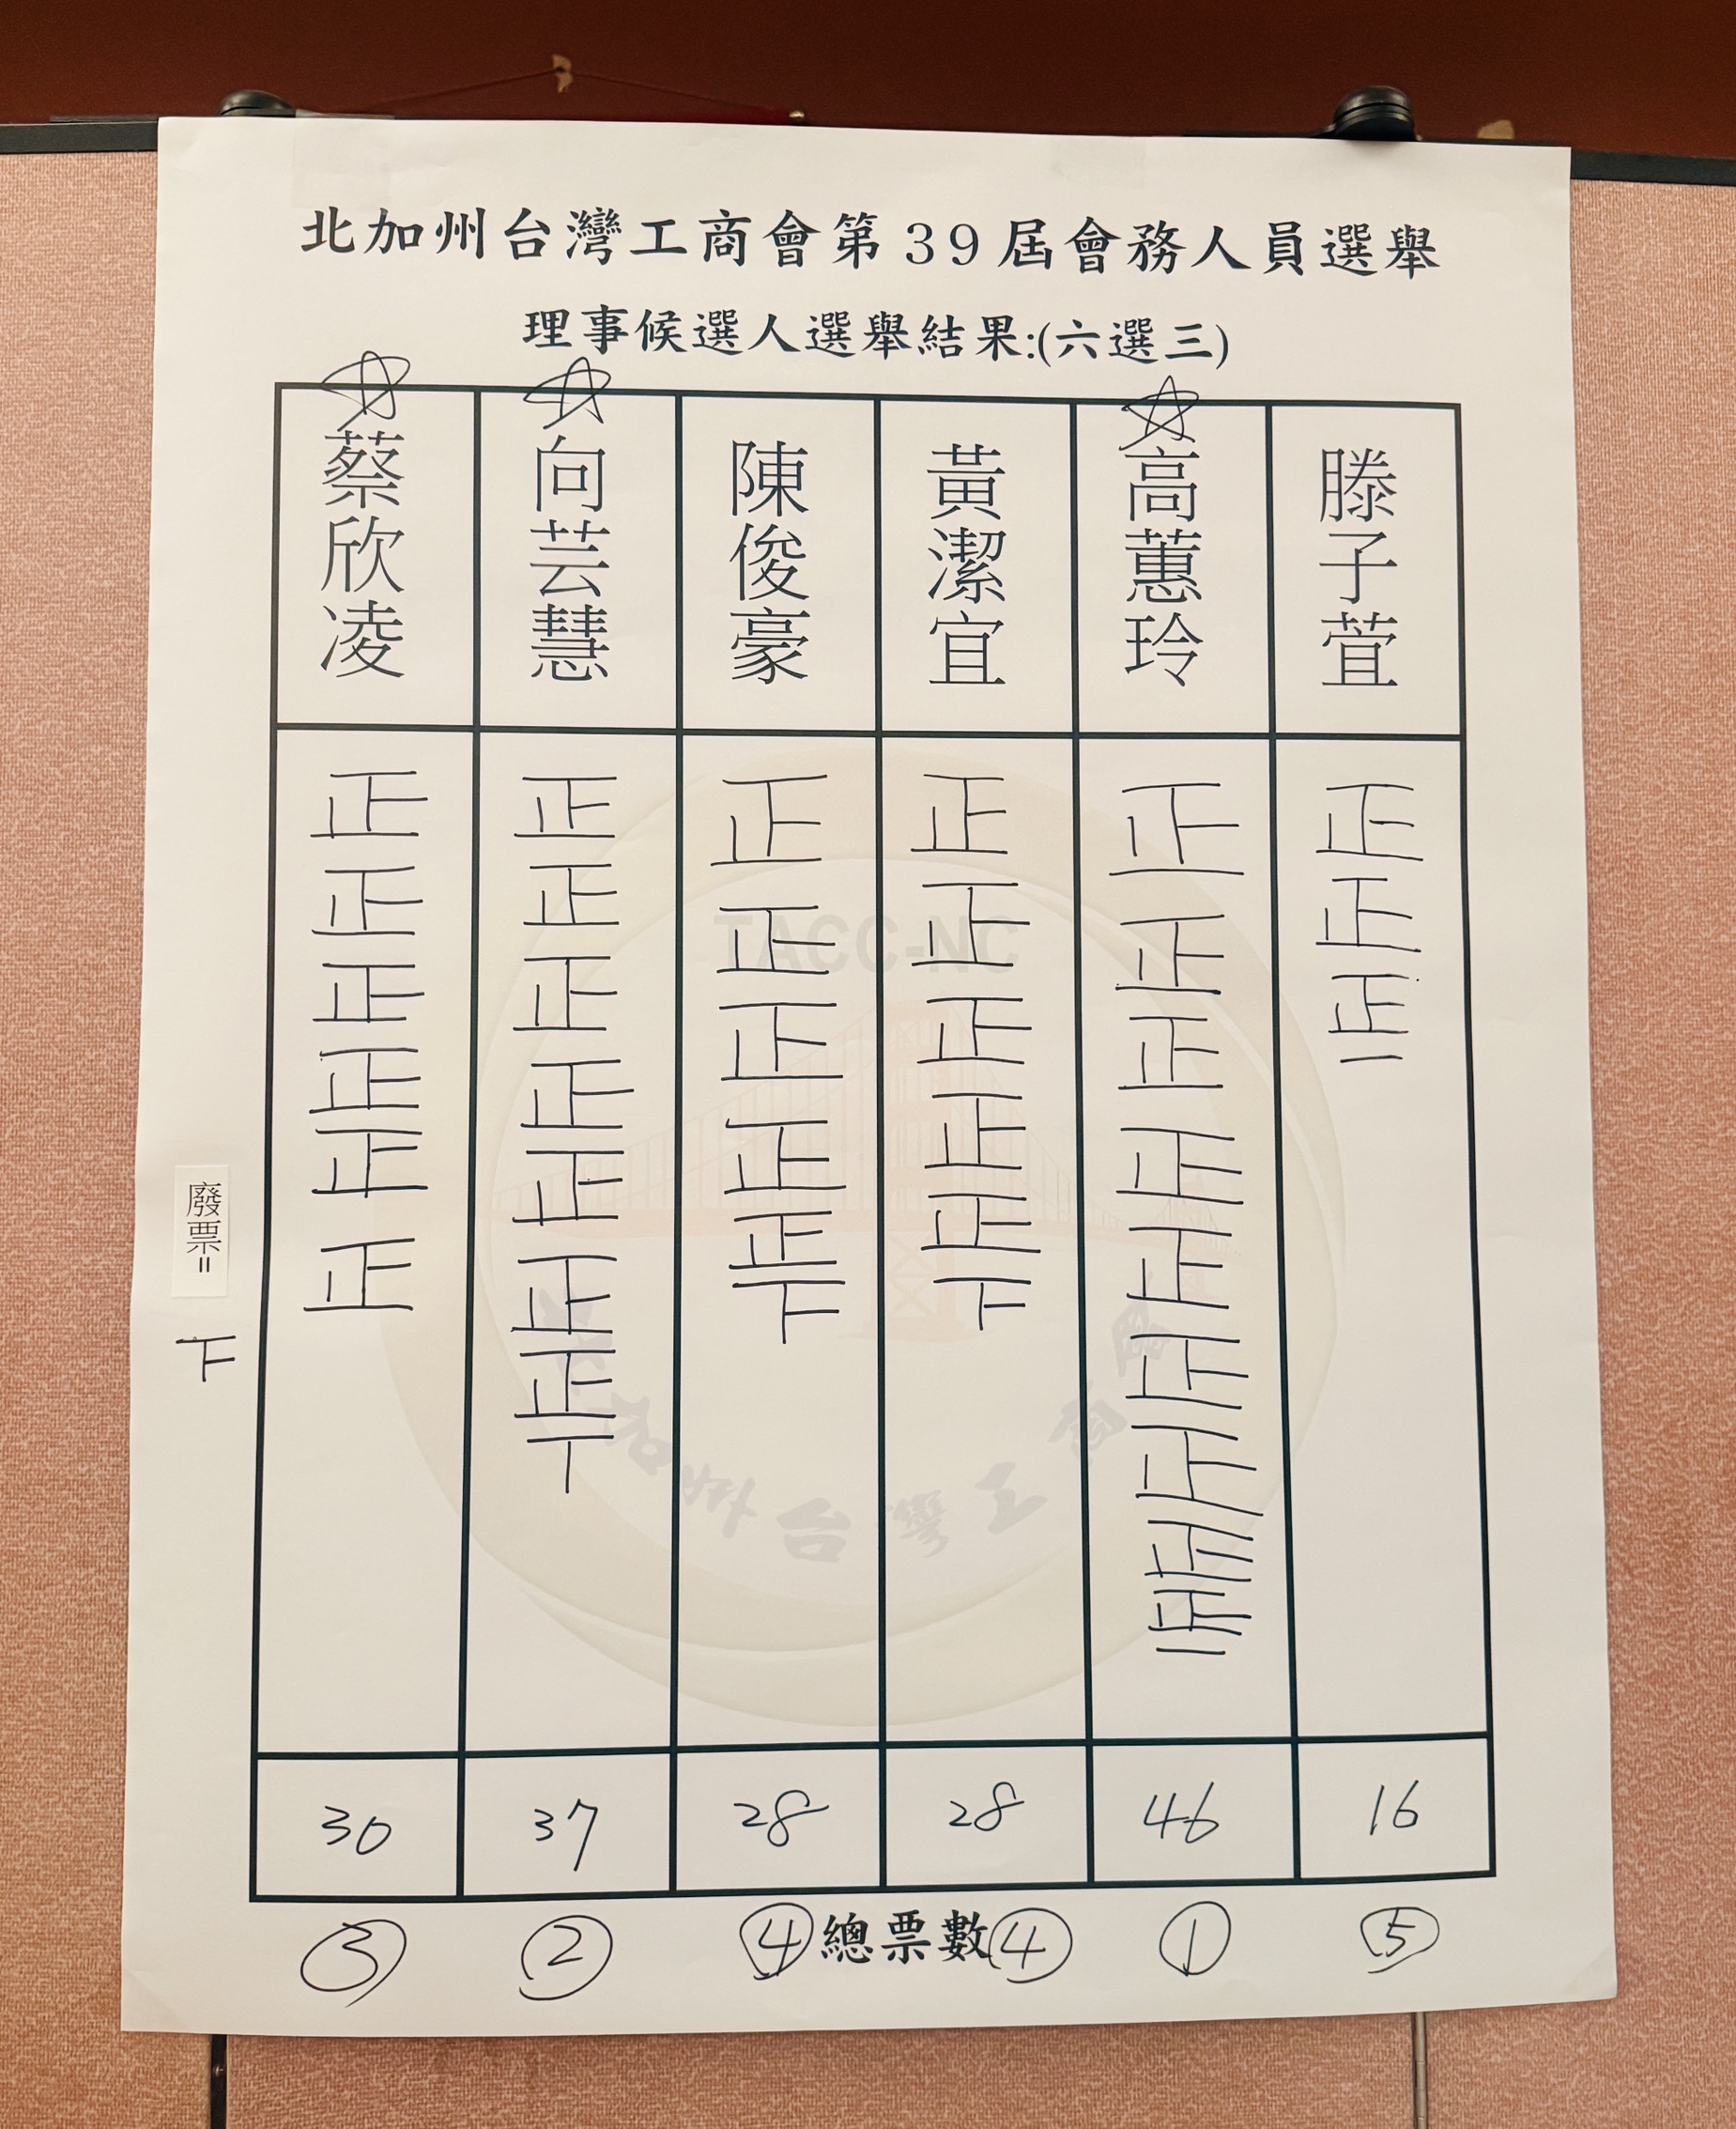 北加州台灣工商會第39屆會務人員選舉
理事候選人選舉結果:(六選三)
蔡欣凌
向芸慧
陳俊豪
黃潔宜
高蕙玲
滕子萱
正正正正正正
正正正正正正正丅
正正正正正下
正正正正正下
正正正正正正正正正一
正正正一
TACC-NC
北加州台灣工商會
廢票=
下
30
37
28
28
46
16
③
②
④總票數④
①
⑤